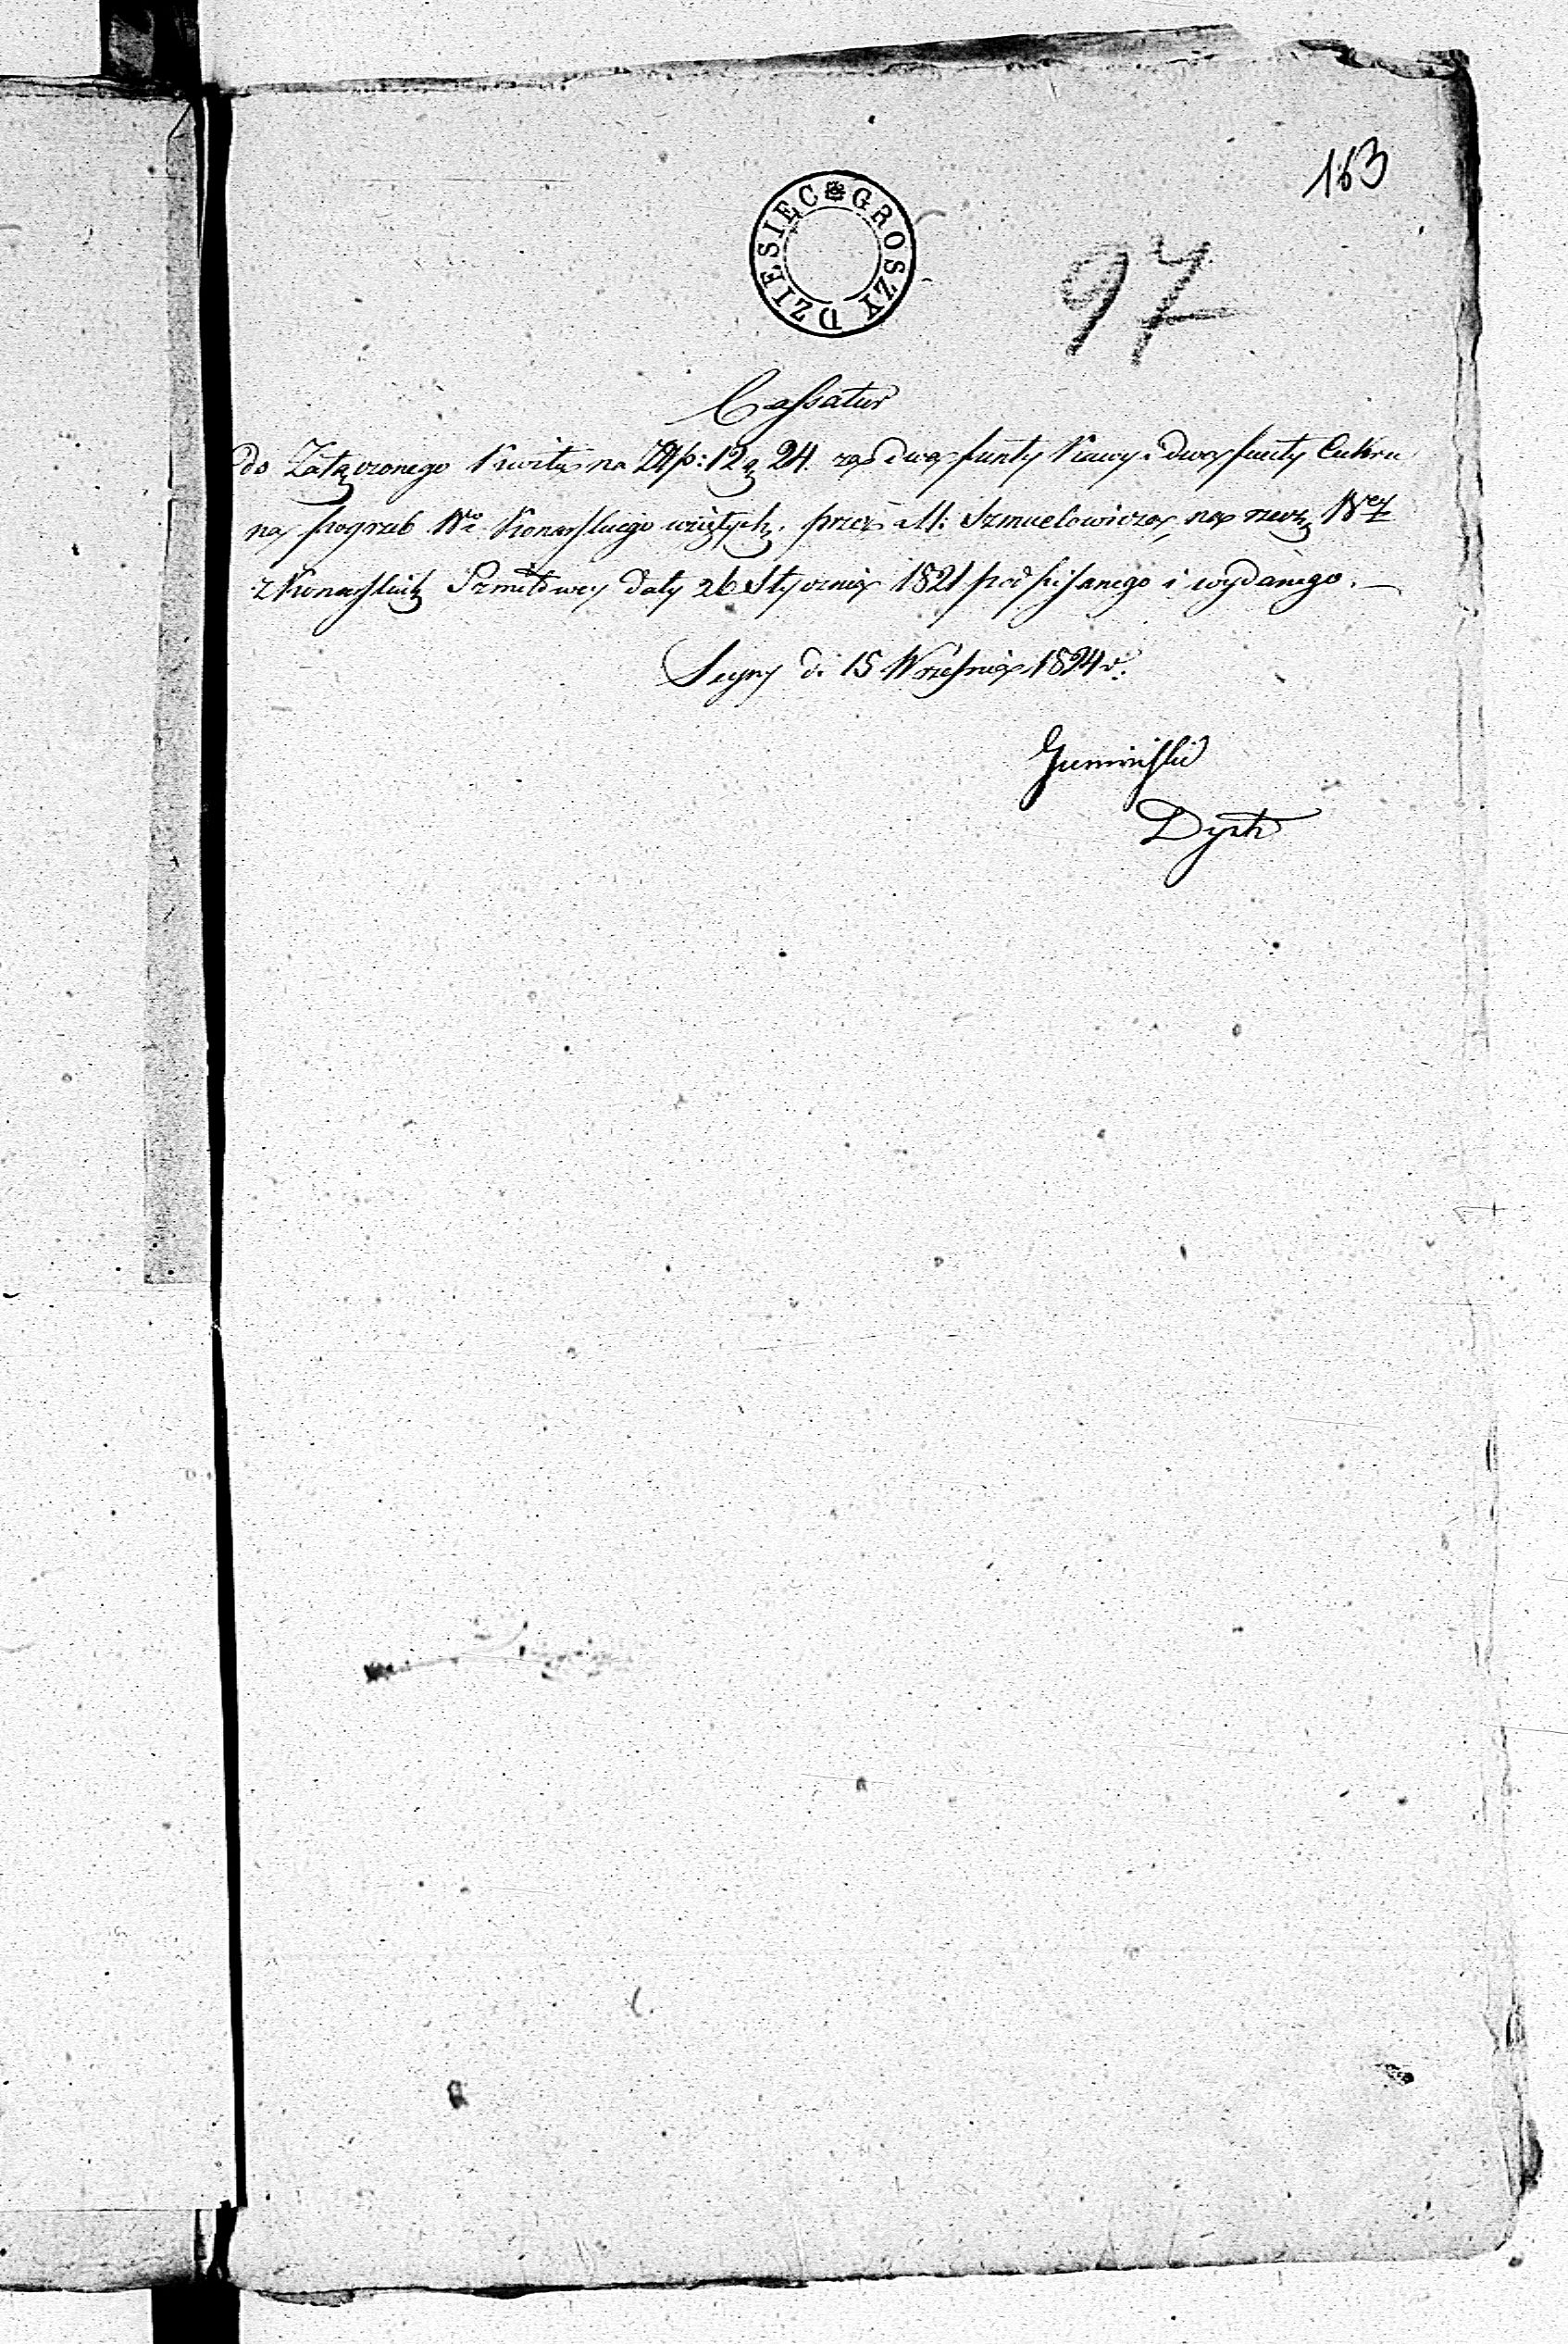 163
DZIESIĘC GROSZY
97
Cassatur
do Załączonego Kwitu na Złp: 12 g 24. za dwa funty Kawy i dwa funty Cukru
na pogrzeb Wo Konarskiego wziętych, przez M: Szmuelowicza, na rzecz Wey
z Konarskich daty 26 Stycznia 1821 podpisanego i wydanego. —
Seyny d. 15 Września 1824 r.
Gumiński